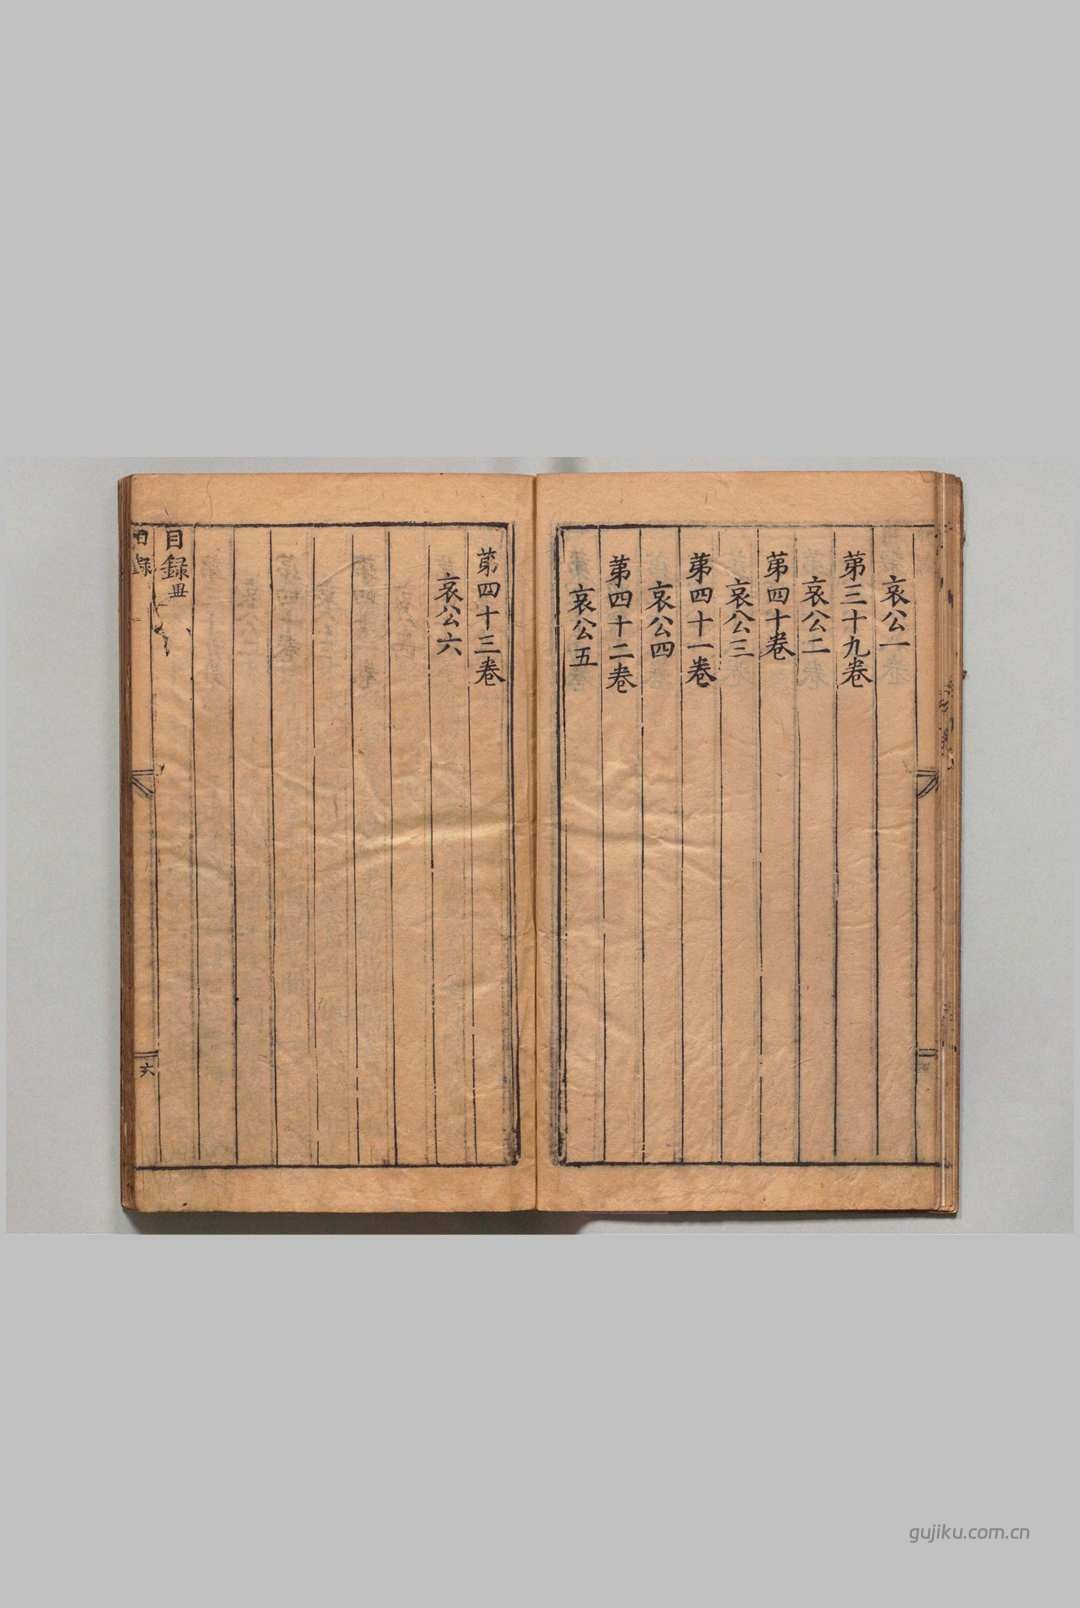 哀公一
第三十九卷
哀公二
第四十卷
哀公三
第四十一卷
哀公四
第四十二卷
哀公五
第四十三卷
哀公六
目録
目録
六
gujiku.com.cn